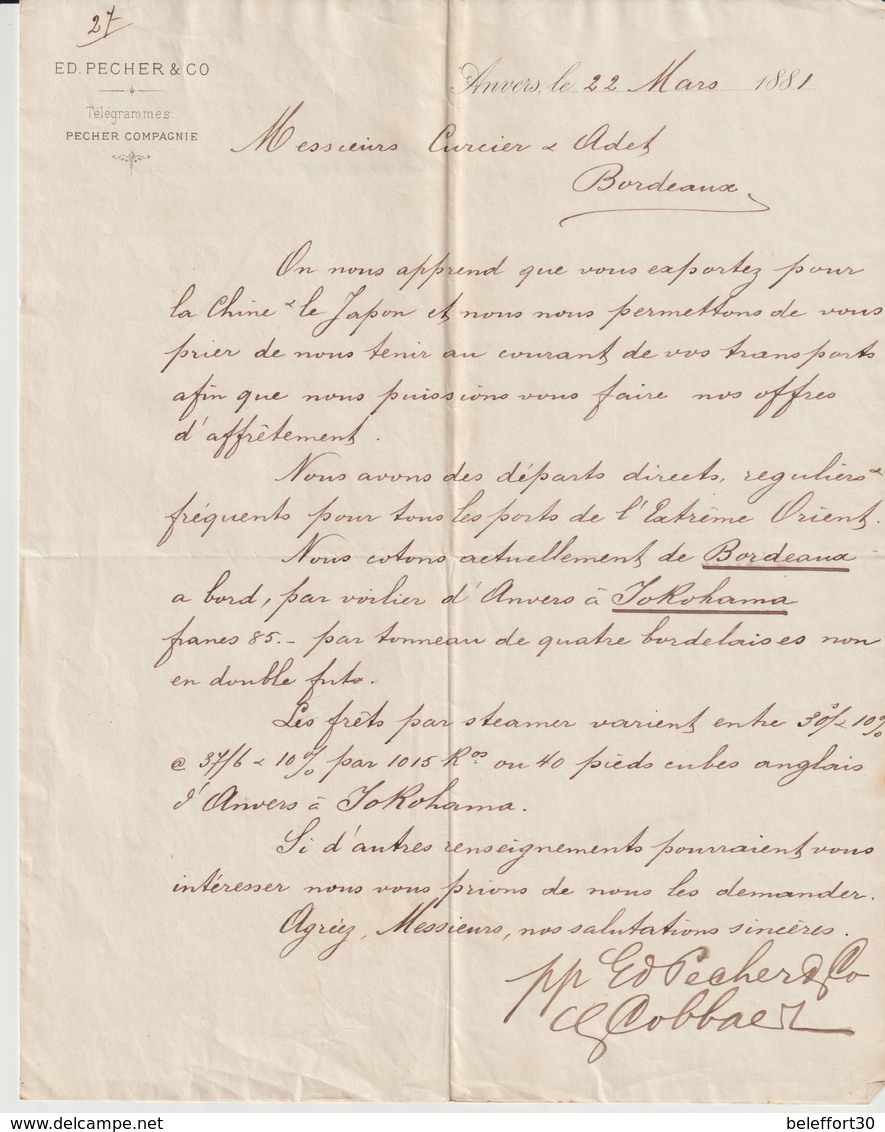 27
ED. PECHER & CO
Télégrammes:
PECHER COMPAGNIE
Anvers, le 22 Mars 1881
Messieurs Curcier & Adet
Bordeaux
On nous apprend que vous exportez pour
la Chine & le Japon et nous nous permettons de vous
prier de nous tenir au courant de vos transports
afin que nous puissions vous faire nos offres
d'affrêtement.
Nous avons des départs directs, reguliers &
fréquents pour tous les ports de l'Extrême Orient.
Nous cotons actuellement de Bordeaux
a bord, par voilier d'Anvers à Yokohama
francs 85.- par tonneau de quatre bordelaises non
en double futs.
Les frêts par steamer varient entre 30/ & 10%
@ 37/6 & 10% par 1015 Kos ou 40 pieds cubes anglais
d'Anvers à Yokohama.
Si d'autres renseignements pourraient vous
intéresser nous vous prions de nous les demander.
Agréez, Messieurs, nos salutations sincères.
pp Ed Pecher & Co
Cobbaert
www.delcampe.net
beleffort30